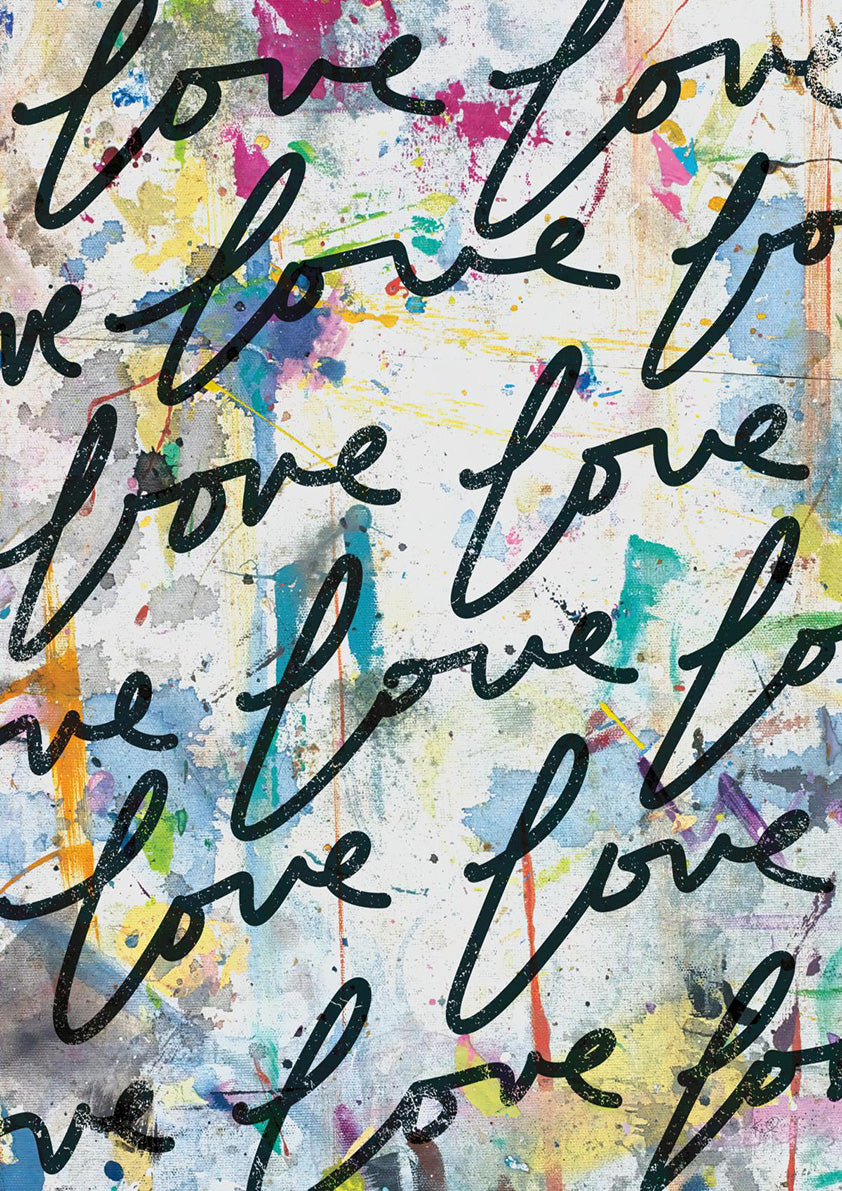 love love
ve love lo
love love
ve love lo
love love
ve love lo